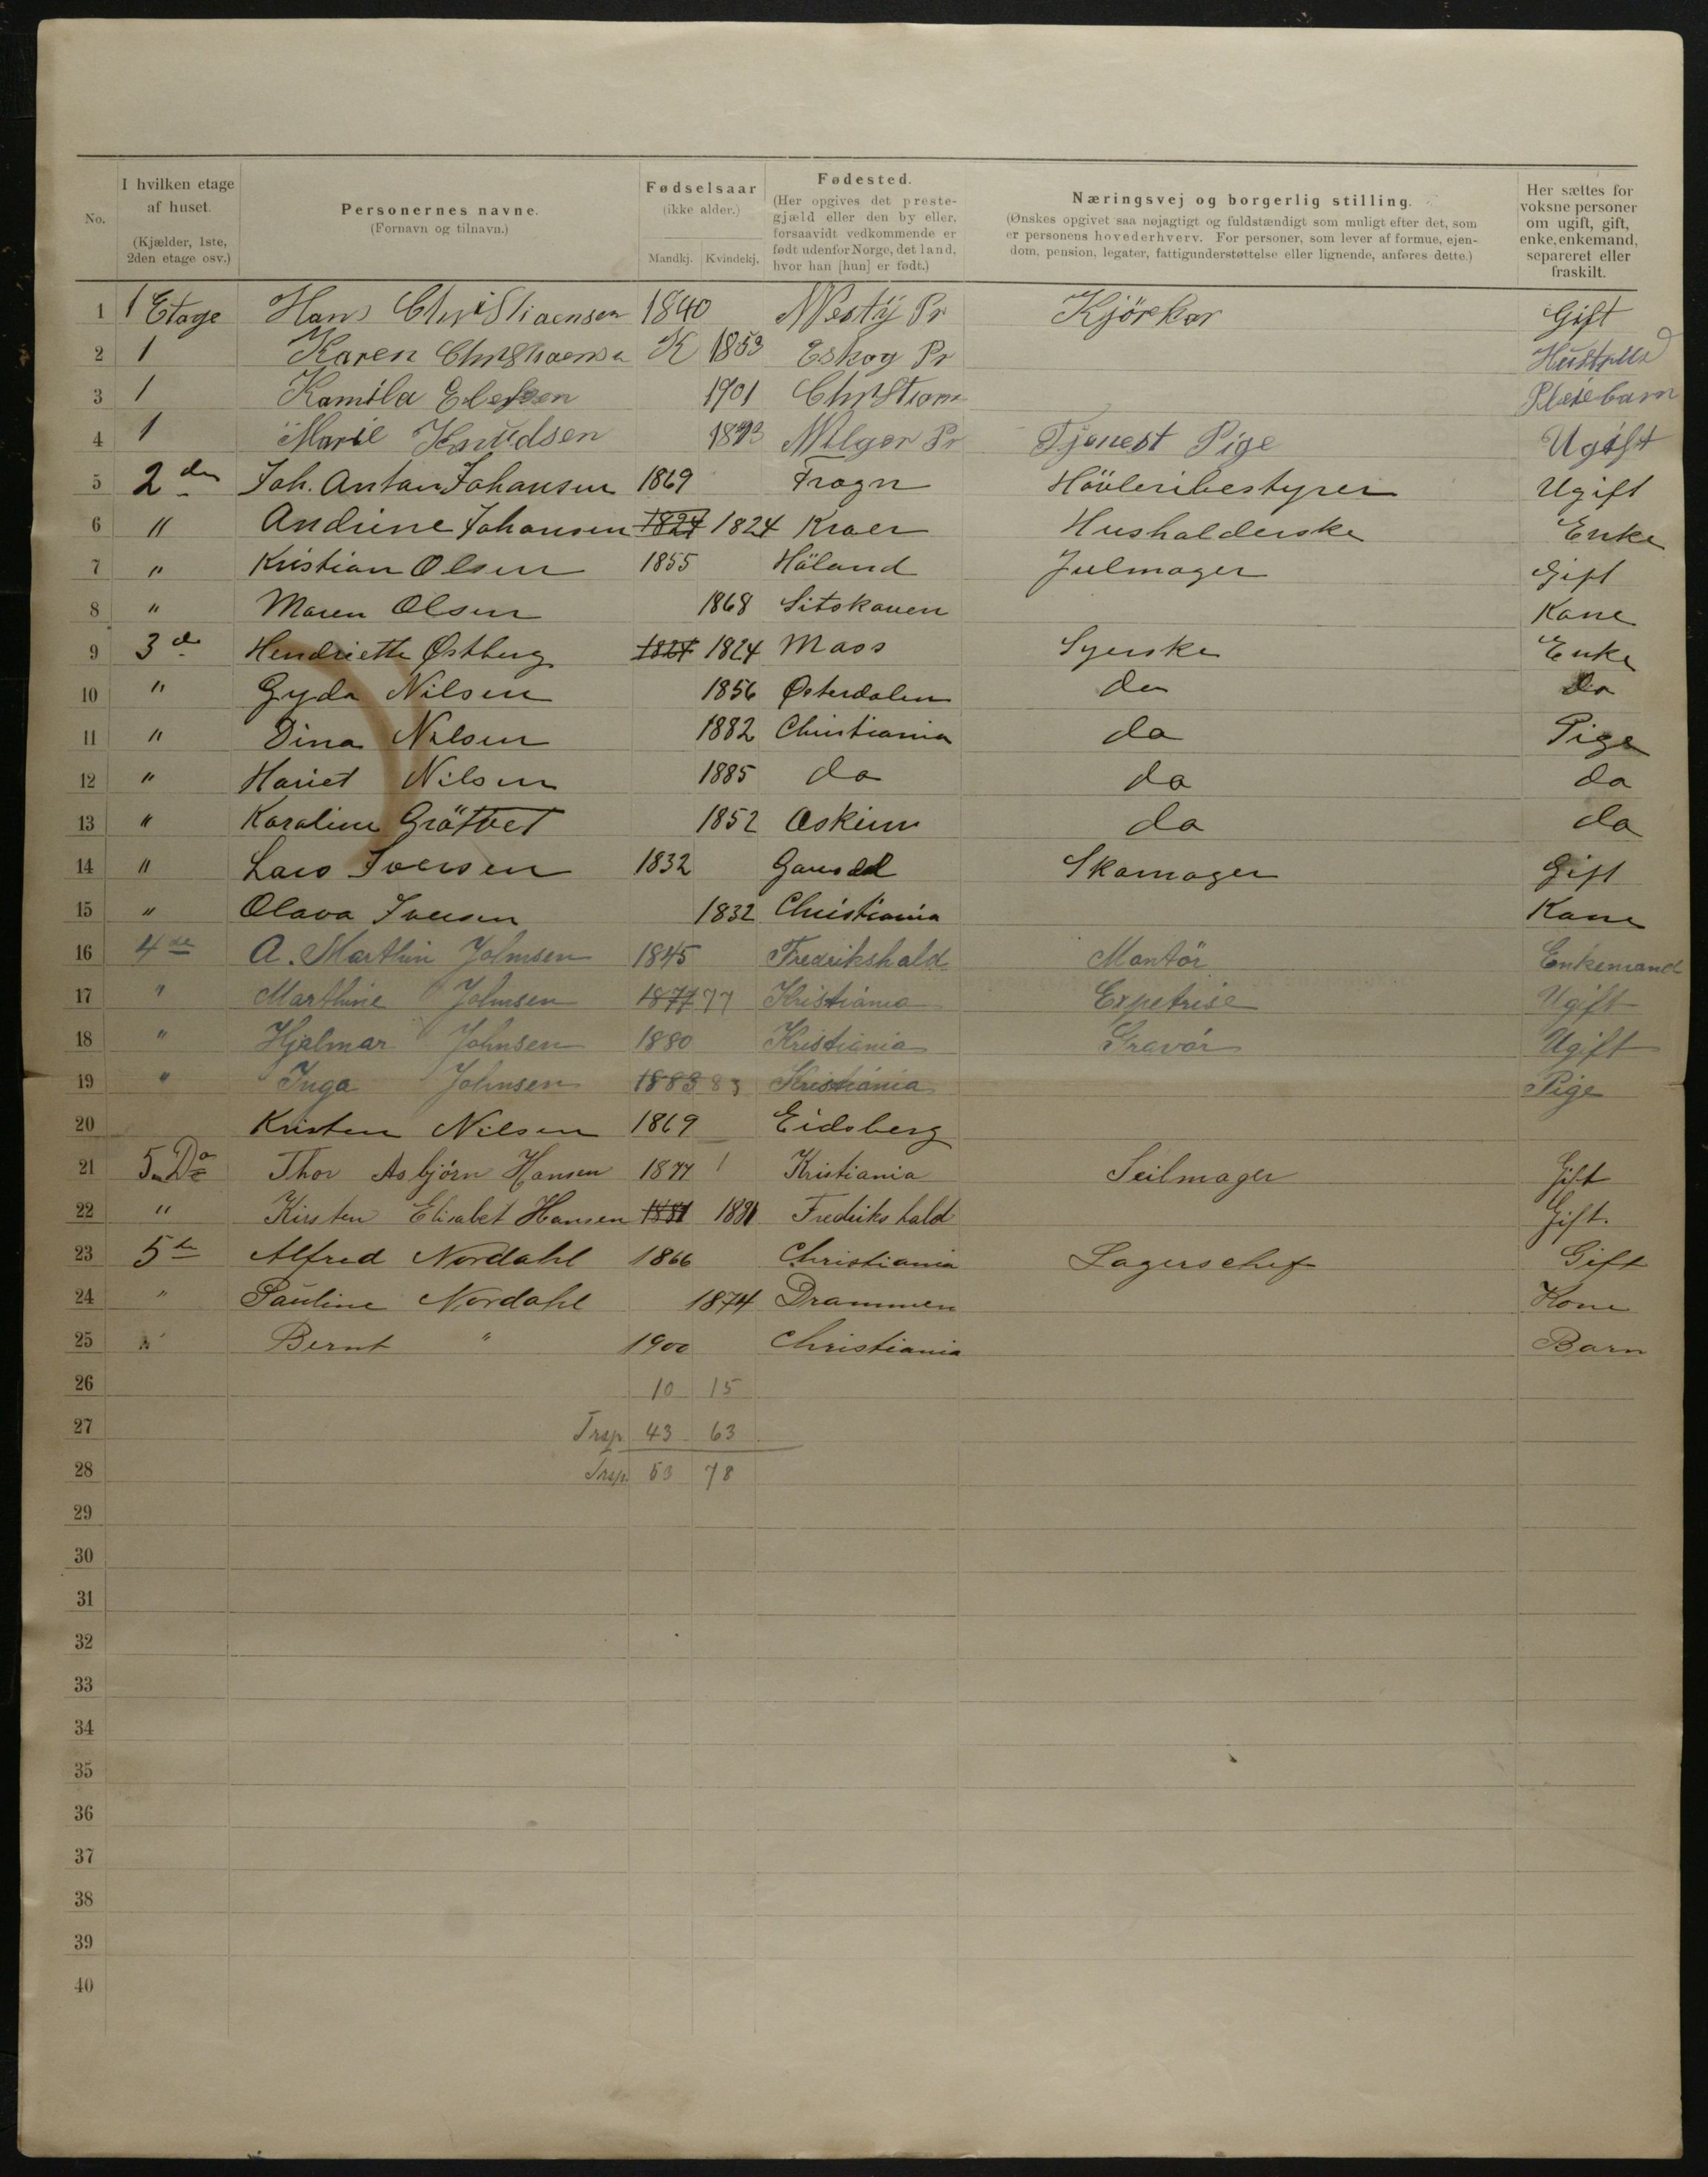 No. I hvilken etage af huset. (Kjælder, 1ste, 2den etage osv.) Personernes navne. (Fornavn og tilnavn.) Fødselsaar (ikke alder.) Mandkj. Kvindekj. Fødested. (Her opgives det prestegjæld eller den by eller, forsaavidt vedkommende er født udenfor Norge, det land, hvor han [hun] er født.) Næringsvej og borgerlig stilling. (Ønskes opgivet saa nøjagtigt og fuldstændigt som muligt efter det, som er personens hovederhverv. For personer, som lever af formue, ejendom, pension, legater, fattigunderstøttelse eller lignende, anføres dette.) Her sættes for voksne personer om ugift, gift, enke, enkemand, separeret eller fraskilt.
1 1 Etage Hans Christiaensen 1840 Nesty Pr Kjörkar Gift
2 1 Karen Christiaensen K 1853 Eskog Pr Hustru
3 1 Kamila 1901 Christiania Pleiebarn
4 1 Marie Knudsen Pr Tjenest Pige Ugift
5 2den Joh. Anton Johansen 1869 Frogn Hövleribestyrer Ugift
6 " Andrine Johansen 1824 1824 Kraer Husholderske Enke
7 " Kristian Olsen 1855 Höland Julmager Gift
8 " Maren Olsen 1868 Sitskauen Kone
9 3de Hendriette Østberg 1824 1824 Moss Syerske Enke
10 " Gyda Nilsen 1856 Østerdalen do do
11 " Dina Nilsen 1882 Christiania do Pige
12 " Hariet Nilsen 1885 do do do
13 " Karoline Grötvet 1852 Askim do do
14 " Lars Iversen 1832 Skomager Gift
15 " Olava Iversen 1832 Christiania Kone
16 4de A. Marthin Johnsen 1845 Fredrikshald Montör Enkemand
17 " Marthine Johnsen 1877 77 Kristiania Expetrise Ugift
18 " Hjalmar Johnsen 1880 Kristiania Gravör Ugift
19 " Inga Johnsen 1883 83 Kristiania Pige
20 Kristen Nilsen 1869 Eidsberg
21 5 Do Thor Asbjörn Hansen 1877 1 Kristiania Seilmager Gift
22 " Kirsten Elisabet Hansen 1881 1881 Fredrikshald Gift.
23 5te Alfred Nordahl 1866 Christiania Lagerschef Gift
24 " Pauline Nordahl 1874 Drammen Kone
25 " Bernt " 1900 Christiania Barn
26 10 15
27 Trsp. 43 63
28 Trsp. 53 78
29
30
31
32
33
34
35
36
37
38
39
40